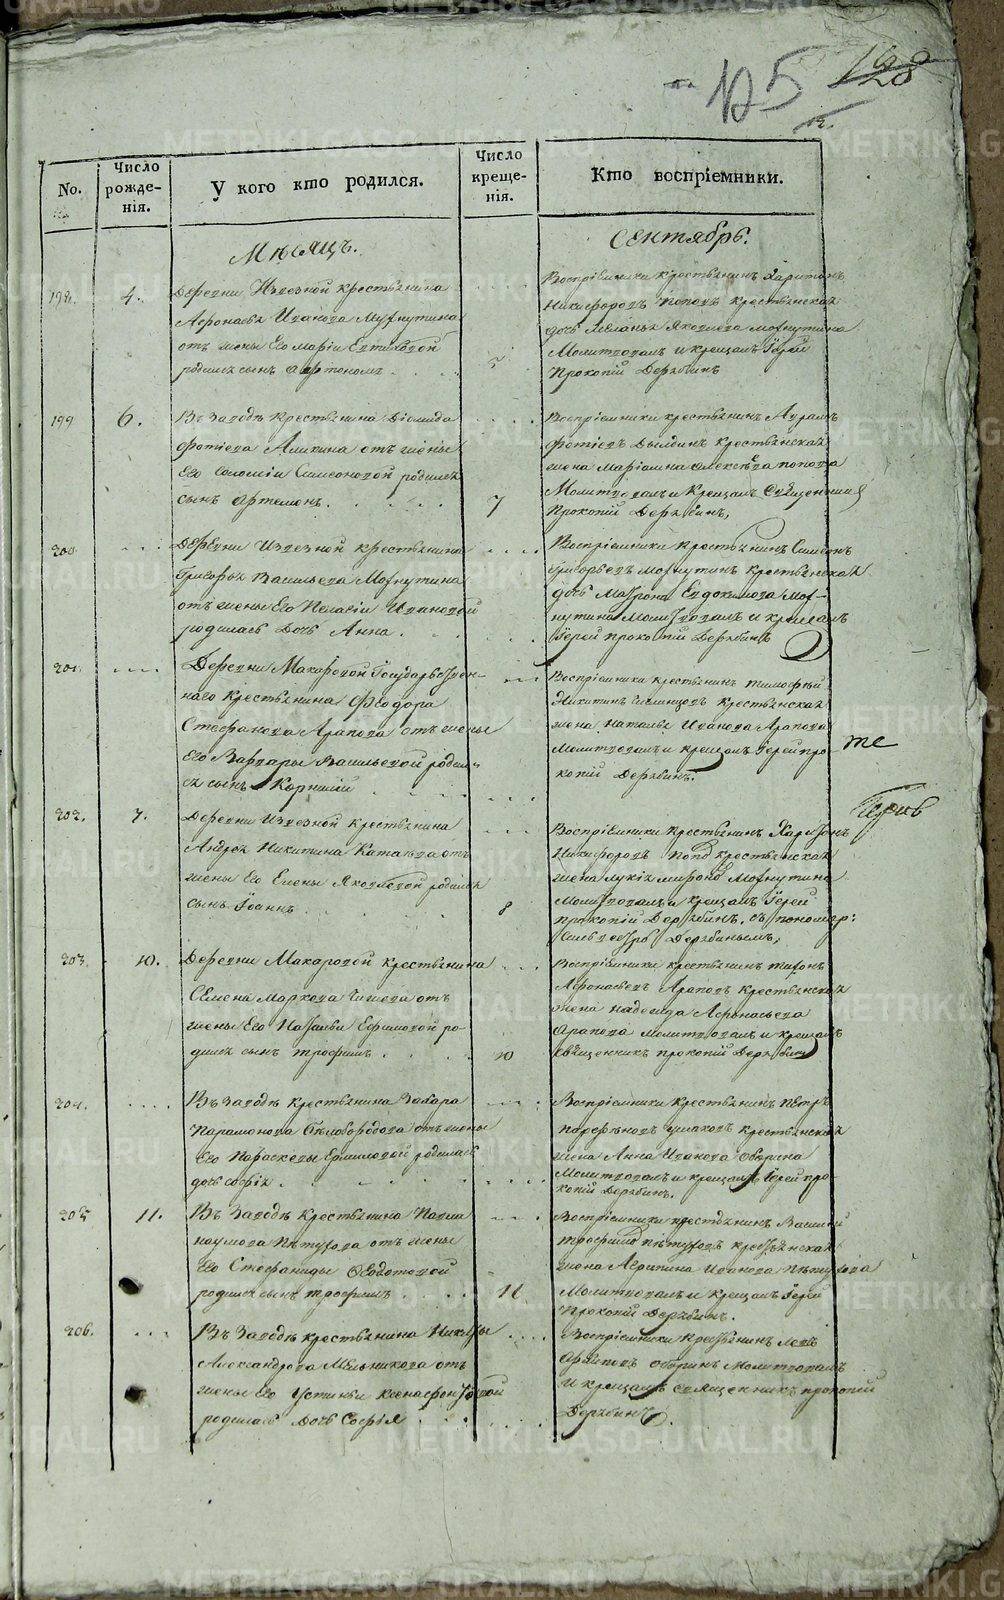 125 128
No.
Число рожде-нія.
У кого кто родился.
Число креще-нія.
Кто воспріемники.
Мѣсяцъ.
Сентябрь.
198. 4.
Деревни Извезной крестьянина
Афонасья Иванова Мохнутина
отъ жены Его Маріи Евтиховой
родился сынъ Автономъ
5
Воспріемники крестьянинъ Харитонъ
Никифоровъ Поповъ крестьянская
дочь Яковлева Мохнутина
Молитвовалъ и крещалъ Іерей
Прокопій Дерябинъ
199 6.
Въ Заводѣ крестьянина Діомида
Фотіева Аликина отъ жены
Его Соломіи Симеоновой родился
сынъ Артемонъ.
7
Воспріемники крестьянинъ
Фотіевъ крестьянская
жена Маріамна Алексѣева Попова
Молитвовалъ и Крещалъ Священникъ
Прокопій Дерябинъ,
200.
Деревни Извезной крестьянина
Григорья Васильева Мохнутина
отъ жены Его Пелагіи Ивановой
родилась Дочь Анна.
Воспріемники крестьянинъ Симеонъ
Григорьевъ Мохнутинъ крестьянская
дочь Матрона Евдокимова Мох-
нутина Молитвовалъ и крещалъ
Іерей Прокопій Дерябинъ
201.
Деревни Макаровой Государствен-
наго крестьянина Феодора
Стефанова Арапова отъ жены
Его Варвары Васильевой родил-
ся сынъ Корнилій
Воспріемники крестьянинъ Тимофей
Никитинъ крестьянская
жена Наталья Иванова Арапова
Молитвовалъ и крещалъ Іерей Про-
копій Дерябинъ.
те
202. 7.
Деревни Извезной крестьянина
Андрея Никитина Катаева отъ
жены Его Елены Яковлевой родился
сынъ Іоаннъ
8
Воспріемники крестьянинъ Харитонъ
Никифоровъ Попов крестьянская
жена Мохнутина
Молитвовалъ и крещалъ Іерей
Прокопій Дерябинъ, съ пономар:
Дерябинымъ,
203. 10.
Деревни Макаровой крестьянина
Семена Маркова отъ
жены Его Натальи Ефимовой ро-
дился сынъ Трофимъ.
10
Воспріемники крестьянинъ Тихонъ
Афонасьевъ Араповъ крестьянская
жена Надежда Афонасьева
Арапова Молитвовалъ и крещалъ
священникъ Прокопій Дерябинъ
204.
Въ Заводѣ крестьянина Захара
Парамонова Бѣлобородова отъ жены
Его Параскевы Ермиловой родилась
дочь Софія
Воспріемники крестьянинъ Петръ
Ушаковъ крестьянская
жена Анна Иванова
Молитвовалъ и крещалъ Іерей Про-
копій Дерябинъ.
205 11.
Въ Заводѣ крестьянина Павла
Наумова Пѣтухова отъ жены
Его Стефаниды Ѳедотовой
родился сынъ Трофимъ
11
Воспріемники крестьянинъ Василій
Трофимов Пѣтуховъ крестьянская
жена Агрипина Иванова Пѣтухова
Молитвовалъ и крещалъ Іерей
Прокопій Дерябинъ.
206.
Въ Заводѣ крестьянина Никиты
Александрова Мѣльникова отъ
жены Его Устиньи Ксенофонтовой
родилась Дочь Софія
Воспріемники крестьянинъ
Молитвовалъ
И крещалъ священникъ Прокопій
Дерябинъ.
METRIKI.GASO-URAL.RU